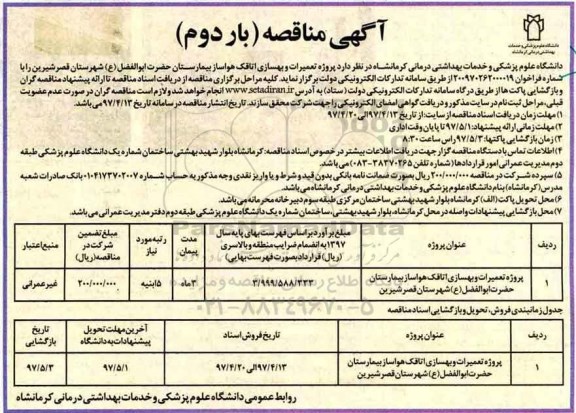 آگهی مناقصه (بار دوم)
دانشگاه علوم پزشکی و خدمات بهداشتی درمانی کرمانشاه
دانشگاه علوم پزشکی و خدمات بهداشتی درمانی کرمانشاه در نظر دارد پروژه تعمیرات و بهسازی اتاقک هواساز بیمارستان حضرت ابوالفضل(ع) شهرستان قصرشیرین را با
شماره فراخوان ۲۰۰۹۷۰۲۶۲۰۰۰۰۱۹ از طریق سامانه تدارکات الکترونیکی دولت برگزار نماید. کلیه مراحل برگزاری مناقصه از دریافت اسناد مناقصه تا ارائه پیشنهاد مناقصه گران
و بازگشایی پاکت ها از طریق درگاه سامانه تدارکات الکترونیکی دولت (ستاد) به آدرس www.setadiran.ir انجام خواهد شد و لازم است مناقصه گران در صورت عدم عضویت
قبلی، مراحل ثبت نام در سایت مذکور و دریافت گواهی امضای الکترونیکی را جهت شرکت محقق سازند. تاریخ انتشار مناقصه در سامانه تاریخ ۹۷/۴/۱۳ می باشد.
۱) مهلت زمان دریافت اسناد مناقصه از سایت: از تاریخ ۹۷/۴/۱۳ الی ۹۷/۴/۲۰
۲) مهلت زمانی ارائه پیشنهاد: ۹۷/۵/۱ تا پایان وقت اداری
۳) زمان بازگشایی پاکتها: ۹۷/۵/۳ راس ساعت ۸:۳۰
۴) اطلاعات تماس با دستگاه مناقصه گزار جهت دریافت اطلاعات بیشتر در خصوص اسناد مناقصه: کرمانشاه بلوار شهید بهشتی ساختمان شماره یک دانشگاه علوم پزشکی طبقه
دوم مدیریت عمرانی امور قراردادها (شماره تلفن ۳۸۳۷۰۲۶۵-۰۸۳) می باشد.
۵) سپرده شرکت در مناقصه ۲۰۰/۰۰۰/۰۰۰ ریال بصورت ضمانت نامه بانکی بدون قید و شرط و یا واریز نقدی وجه مذکور به حساب شماره ۰۱۰۴۱۷۳۷۰۲۰۰۷ بانک صادرات شعبه
مدرس (کرمانشاه) بنام دانشگاه علوم پزشکی و خدمات بهداشتی درمانی کرمانشاه می باشد.
۶) محل تحویل پاکت (الف) کرمانشاه بلوار شهید بهشتی ساختمان مرکزی طبقه سوم دبیرخانه محرمانه می باشد.
۷) محل بازگشایی پیشنهادات واصله در محل کرمانشاه، بلوار شهید بهشتی، ساختمان شماره یک دانشگاه علوم پزشکی طبقه دوم دفتر مدیریت عمرانی می باشد.
ردیف عنوان پروژه مبلغ برآورد بر اساس فهرست بهای پایه سال ۱۳۹۷ به انضمام ضرایب منطقه و بالاسری (ریال) (قرارداد بصورت فهرست بهایی) مدت پیمان رتبه مورد نیاز مبلغ تضمین شرکت در مناقصه (ریال) منبع اعتبار
۱ پروژه تعمیرات و بهسازی اتاقک هواساز بیمارستان حضرت ابوالفضل (ع) شهرستان قصرشیرین ۳/۹۹۹/۵۸۸/۳۲۳ ۳ماه ۵ابنیه ۲۰۰/۰۰۰/۰۰۰ غیرعمرانی
۰۲۱-۸۸۳۴۹۶۷۰-۵
جدول زمانبندی فروش، تحویل و بازگشایی اسناد مناقصه
ردیف عنوان پروژه تاریخ فروش اسناد آخرین مهلت تحویل پیشنهادات به دانشگاه تاریخ بازگشایی
۱ پروژه تعمیرات و بهسازی اتاقک هواساز بیمارستان حضرت ابوالفضل (ع) شهرستان قصرشیرین ۹۷/۴/۱۳ الی ۹۷/۴/۲۰ ۹۷/۵/۱ ۹۷/۵/۳
روابط عمومی دانشگاه علوم پزشکی و خدمات بهداشتی درمانی کرمانشاه